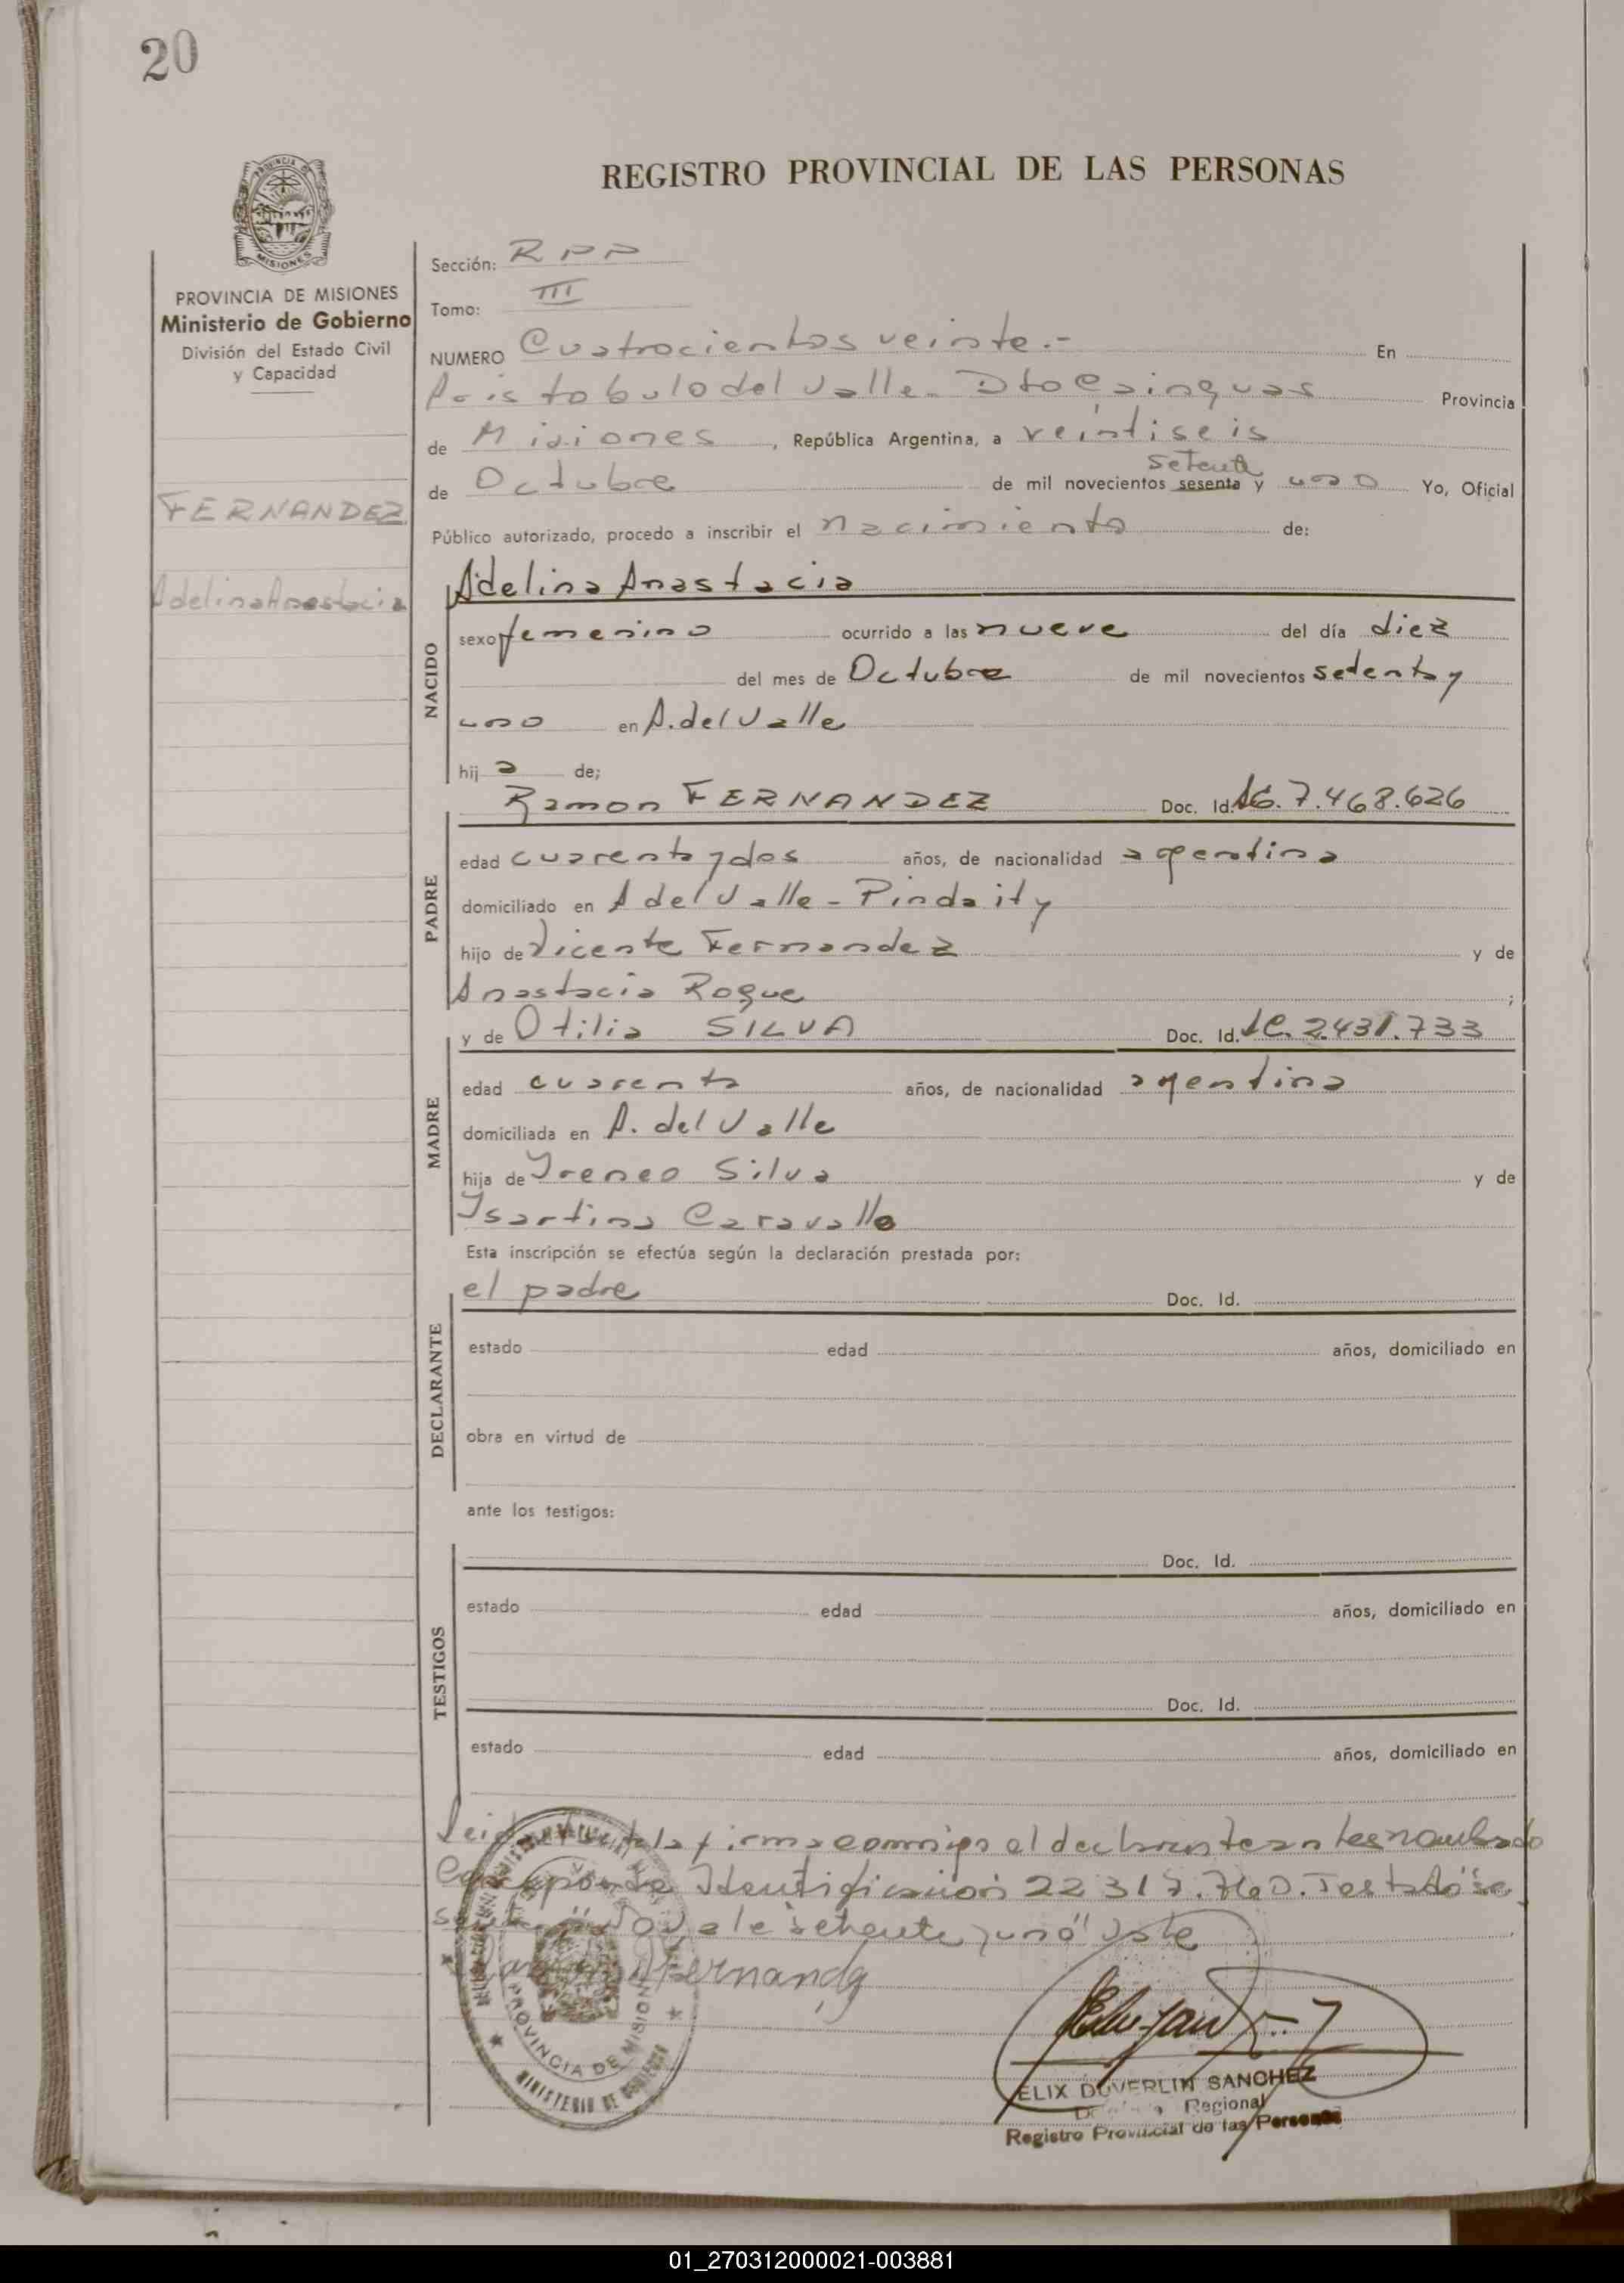 20
REGISTRO PROVINCIAL DE LAS PERSONAS
PROVINCIA DE MISIONES
Ministerio de Gobierno
División del Estado Civil
y Capacidad
FERNANDEZ
Adelina Anastacia
Sección: RPP
Tomo: III
NUMERO Cuatrocientos veinte.- En
Aristobulo del Valle - Dto Cainguas Provincia
de Misiones, República Argentina, a veintiseis
setenta
de Octubre de mil novecientos sesenta y uno Yo, Oficial
Público autorizado, procedo a inscribir el nacimiento de:
NACIDO
Adelina Anastacia
sexo femenino ocurrido a las nueve del día diez
del mes de Octubre de mil novecientos setenta y
uno en A. del Valle
hija de;
PADRE
Ramon FERNANDEZ Doc. Id. 7.468.626
edad cuarenta y dos años, de nacionalidad argentina
domiciliado en A del Valle - Pindaity
hijo de Vicente Fernandez y de
Anastacia Roque ;
MADRE
y de Otilia SILVA Doc. Id. LC. 2.431.733
edad cuarenta años, de nacionalidad argentina
domiciliada en A. del Valle
hija de Yreneo Silva y de
Ysartina Caravallo
Esta inscripción se efectúa según la declaración prestada por:
DECLARANTE
el padre Doc. Id.
estado edad años, domiciliado en
obra en virtud de
ante los testigos:
TESTIGOS
Doc. Id.
estado edad años, domiciliado en
Doc. Id.
estado edad años, domiciliado en
Leida el acta la firma conmigo el declarante antes nombrado
Corresponde Identificación 22.317.760. Testado "se
senta" No vale "setenta y uno" Vale
Fernandez
PROVINCIA DE MISIONES
MINISTERIO DE GOBIERNO
ELIX DUVERLIN SANCHEZ
Regional
Registro Provincial de las Personas
01_270312000021-003881